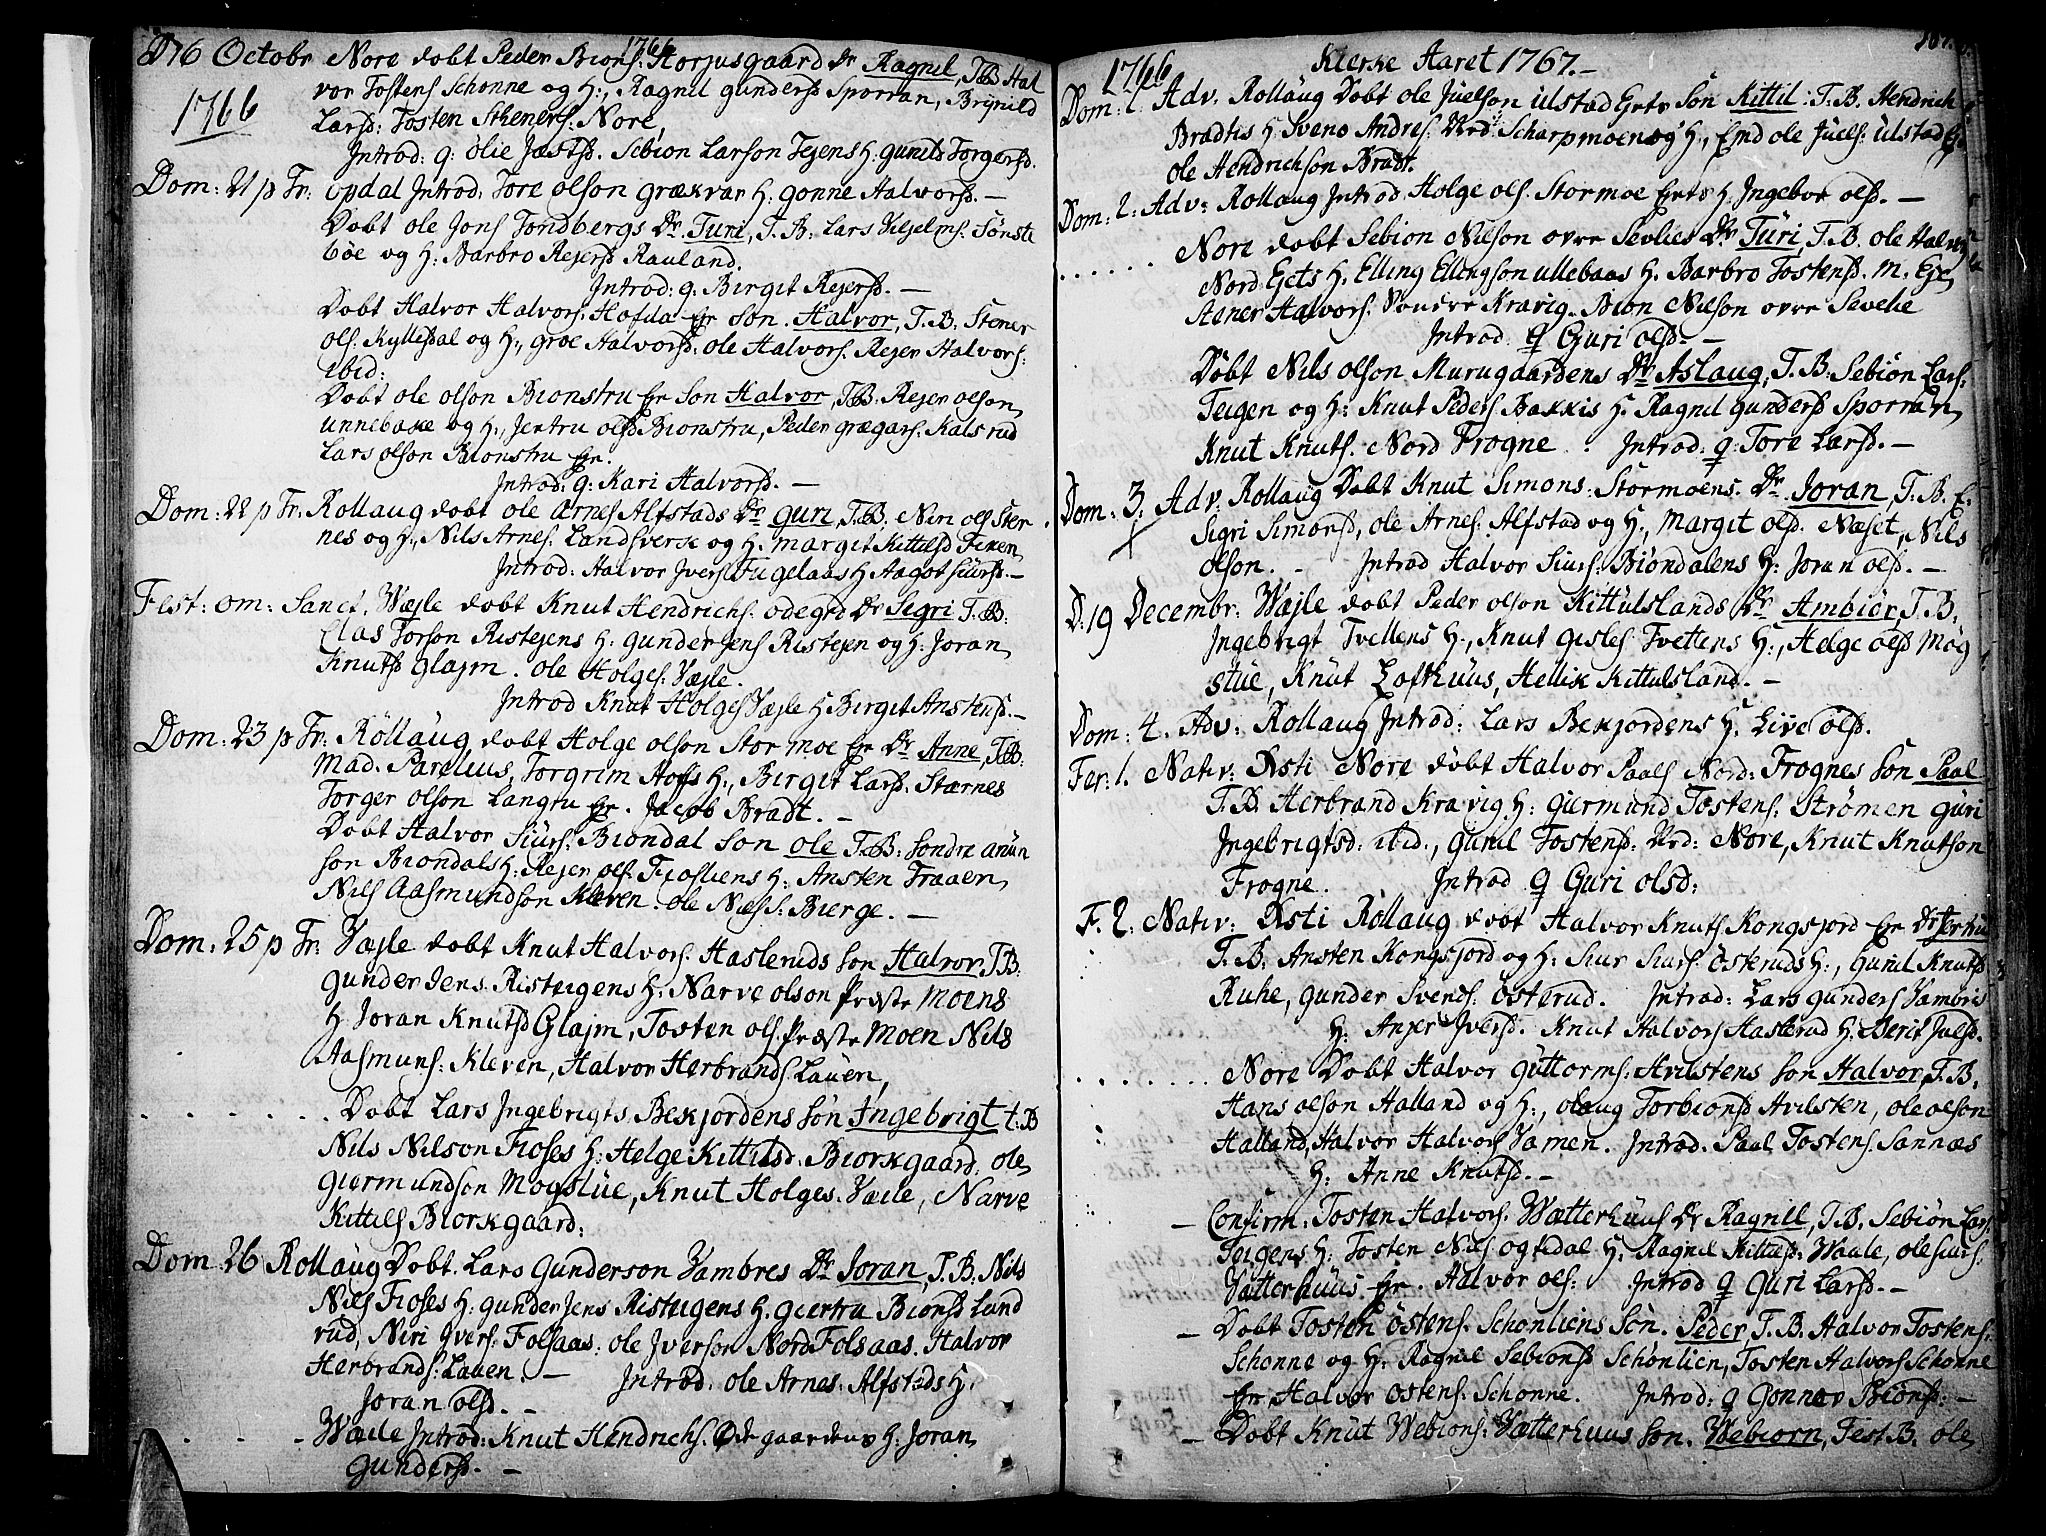 1766
D 16 Octobr Nore dobt Peder Bions: Horjusgaard Dr Ragnil, T.B. Hal
1766
vor Tostens Schonne og H:, Ragnil Gundersd Sporran, Brynild
Larsd: Tosten Stheners: Nore,
Introd: q: Olie Jæstsd. Sebion Larson Tejens H: Gunild Torgersd.
Dom: 21 p Tr: Opdal Introd: Tore Olson Grækvar H: Gonne Halvorsd. —
Dobt Ole Jons Tondbergs Dr Turi, T.B: Lars Viljelms: Sønste
bøe og H: Barbro Rejersd Rauland.
Introd: q: Birgit Rejersd. —
Dobt Halvor Halvors: Hofda Er Son. Halvor, T.B: Stener
Ols: Kyllesdal og H:, Groe Halvorsd: Ole Halvors. Rejer Halvors:
ibid:
Dobt Ole Olson Bionstru Er Son Halvor, T.B: Rejer Olson
Unnebake og H:, Jertru Olsd Bionstru, Peder Grægars: Kalsrud
Lars Olson Bionstru Er.
Introd: q: Kari Halvorsd. —
Dom: 22 p Tr: Rollaug dobt Ole Arnes Alfstads Dr Guri, T.B. Niri Ols Ster
nes og H:, Nils Arnes: Landsverk og H: Margit Kittilsd Fiken,
Introd: Halvor Ivers Fugelaas H Aagot Siursd. —
Fest: Om: Sanct. Wæjle dobt Knut Hendrichs: Odegrd Dr Segri T.B:
Clas Torson Ristejens H: Gunder Jens Ristejen og H: Joran
Knutsd Glajm. Ole Holges: Væjle.
Introd Knut Holges Væjle H Birgit Anstensd. —
Dom: 23 p Tr: Rollaug dobt Holge Olson Stormoe Er Dr Anne, T.B:
Mad. Parelius, Torgrim Hoffs H:, Birgit Larsd. Stærnes
Torger Olson Langtu Er. Jacob Bradt. —
Dobt Halvor Siurs: Biondal Son Ole T.B: Sondre Anun
son Biondals H: Rejer Ols: Fiosliens H: Ansten Traaen,
Nils Aasmundson Kleven. Ole Niels: Bierge. —
Dom: 25 p Tr: Væjle dobt Knut Halvors. Hasleruds Son Halvor, T.B:
Gunder Jens Risteigens H: Narve Olson Præste Moens
H Joran Knutsd Glajm, Tosten Ols. Præste Moen Nils
Aasmuns: Kleven, Halvor Herbrands Lauen,
Dobt Lars Ingebrigts Bekjordens Søn Ingebrigt T:B
Nils Nilson Fioses H: Helge Kittilsd. Biorkgaard: Ole
Giermundson Mogstue, Knut Holges. Væjle, Narve
Kittils Biorkgaard:
Dom: 26 Rollaug Dobt. Lars Gunderson Vambres Dr Joran, T.B. Nils
Nils Fioses H: Gunder Jens Risteigens H. Giertru Bionsd Lund
rud, Niri Ivers: Folsaas: Ole Iverson Nord Folsaas. Halvor
Herbrands: Lauen. — Introd: Ole Arnes: Alfstads H.
Joran Olsd. —
Waile Introd: Knut Hendrichs. Odegaardens H: Joran
Gundersd. —
1766
Kierke Aaret 1767. —
Dom: 1. Adv. Rollaug Dobt Ole Juelson Ulstad Erts Son Kittil: T.B. Hendrich
Bradtis H Sveno Andres: Nrd: Scharpmoen og H:, Emd Ole Juels: Ulstad
Ole Hendrichson Bradt.
Dom: 2: Adv: Rollaug Introd Holge Ols. Stormoe Erts H Ingebor Olsd. —
Nore dobt Sebion Nilson Ovre Sevlies Dr Turi, T.B. Ole Halvs
Nord Gets H. Elling Ellingson Ullebaas H. Barbro Tostensd. M. Ege
Stener Halvors. Søndre Kravig. Bion Nilson Ovre Sevelie
Introd q Guri Olsd. —
Dobt Nils Olson Murugaardens Dr Aslaug, T.B. Sebiøn Lars:
Teigen og H: Knut Peders Bakkis H. Ragnil Gundersd Sporran,
Knut Knuts. Nord Frogne. Introd: q: Tore Larsd. —
Dom: 3. Adv: Rollaug Dobt Knut Simons: Stormoens. Dr Joran, T.B. E.
Sigri Simonsd, Ole Arnes: Alfstad og H:, Margit Olsd. Næset, Nils
Olson. — Introd Halvor Siurs: Biøndalens H: Joran Olsd. —
D. 19 Decembr: Wajle dobt Peder Olson Kittulslands Dr Ambiør, T.B.
Ingebrigt Tvellens H:, Knut Gisles: Tvettens H:, Helge Olsd Møg
stue, Knut Lofthuus, Hellik Kittulsland. —
Dom: 4. Adv: Rollaug Introd: Lars Bekjordens H: Live Olsd.
Fer: 1. Nativ: Xsti Nore dobt Halvor Paals Nord: Frognes Søn Paal
T.B. Herbrand Kravig H: Giermund Tostens: Strømen Guri
Ingebrigtsd: ibid., Gunil Tostensd: Nrd: Nore, Knut Knutson
Frogne. Introd q Guri Olsd:
F. 2. Nativ: Xsti Rollaug dobt Halvor Knuts Kongsjord Er Dr Jertru
T.B. Ansten Kongsjord og H: Siur Siurs: Østeruds H:, Gunil Knutsd
Ruhe, Gunder Svends: Østerud. Introd: Lars Gunders Vambris
H: Anjer Iversd. Knut Halvors Hasterud H: Berit Juelsd.
Nore Dobt Halvor Guttorms: Hvilstens Søn Halvor, T.B.
Hans Olson Halland og H:, Olaug Torbionsd Hvilsten, Ole Olson
Halland, Halvor Halvors Vamen. Introd. Paal Tostens. Sannæs
H: Anne Knutsd. —
— Confirm. Tosten Halvors. Wætterhuus Dr Ragnill, T.B. Sebiøn Lars
Teigens H: Tosten Niels Ogsedal H. Ragnil Kittilsd: Waale, Ole Siurs.
Vatterhuus Er. Halvor Ols: Introd q Guri Larsd. —
— Dobt Tosten Ostens. Schonliens Søn. Peder, T.B. Halvor Tostens.
Schonne og H. Ragnil Sebionsd Schonlien, Tosten Halvors Schonne
Er Halvor Ostens. Schonne. Introd: q Gonner Bionsd: —
— Dobt Knut Webions: Vætterhuus Son. Webiorn, Test. B. Ole